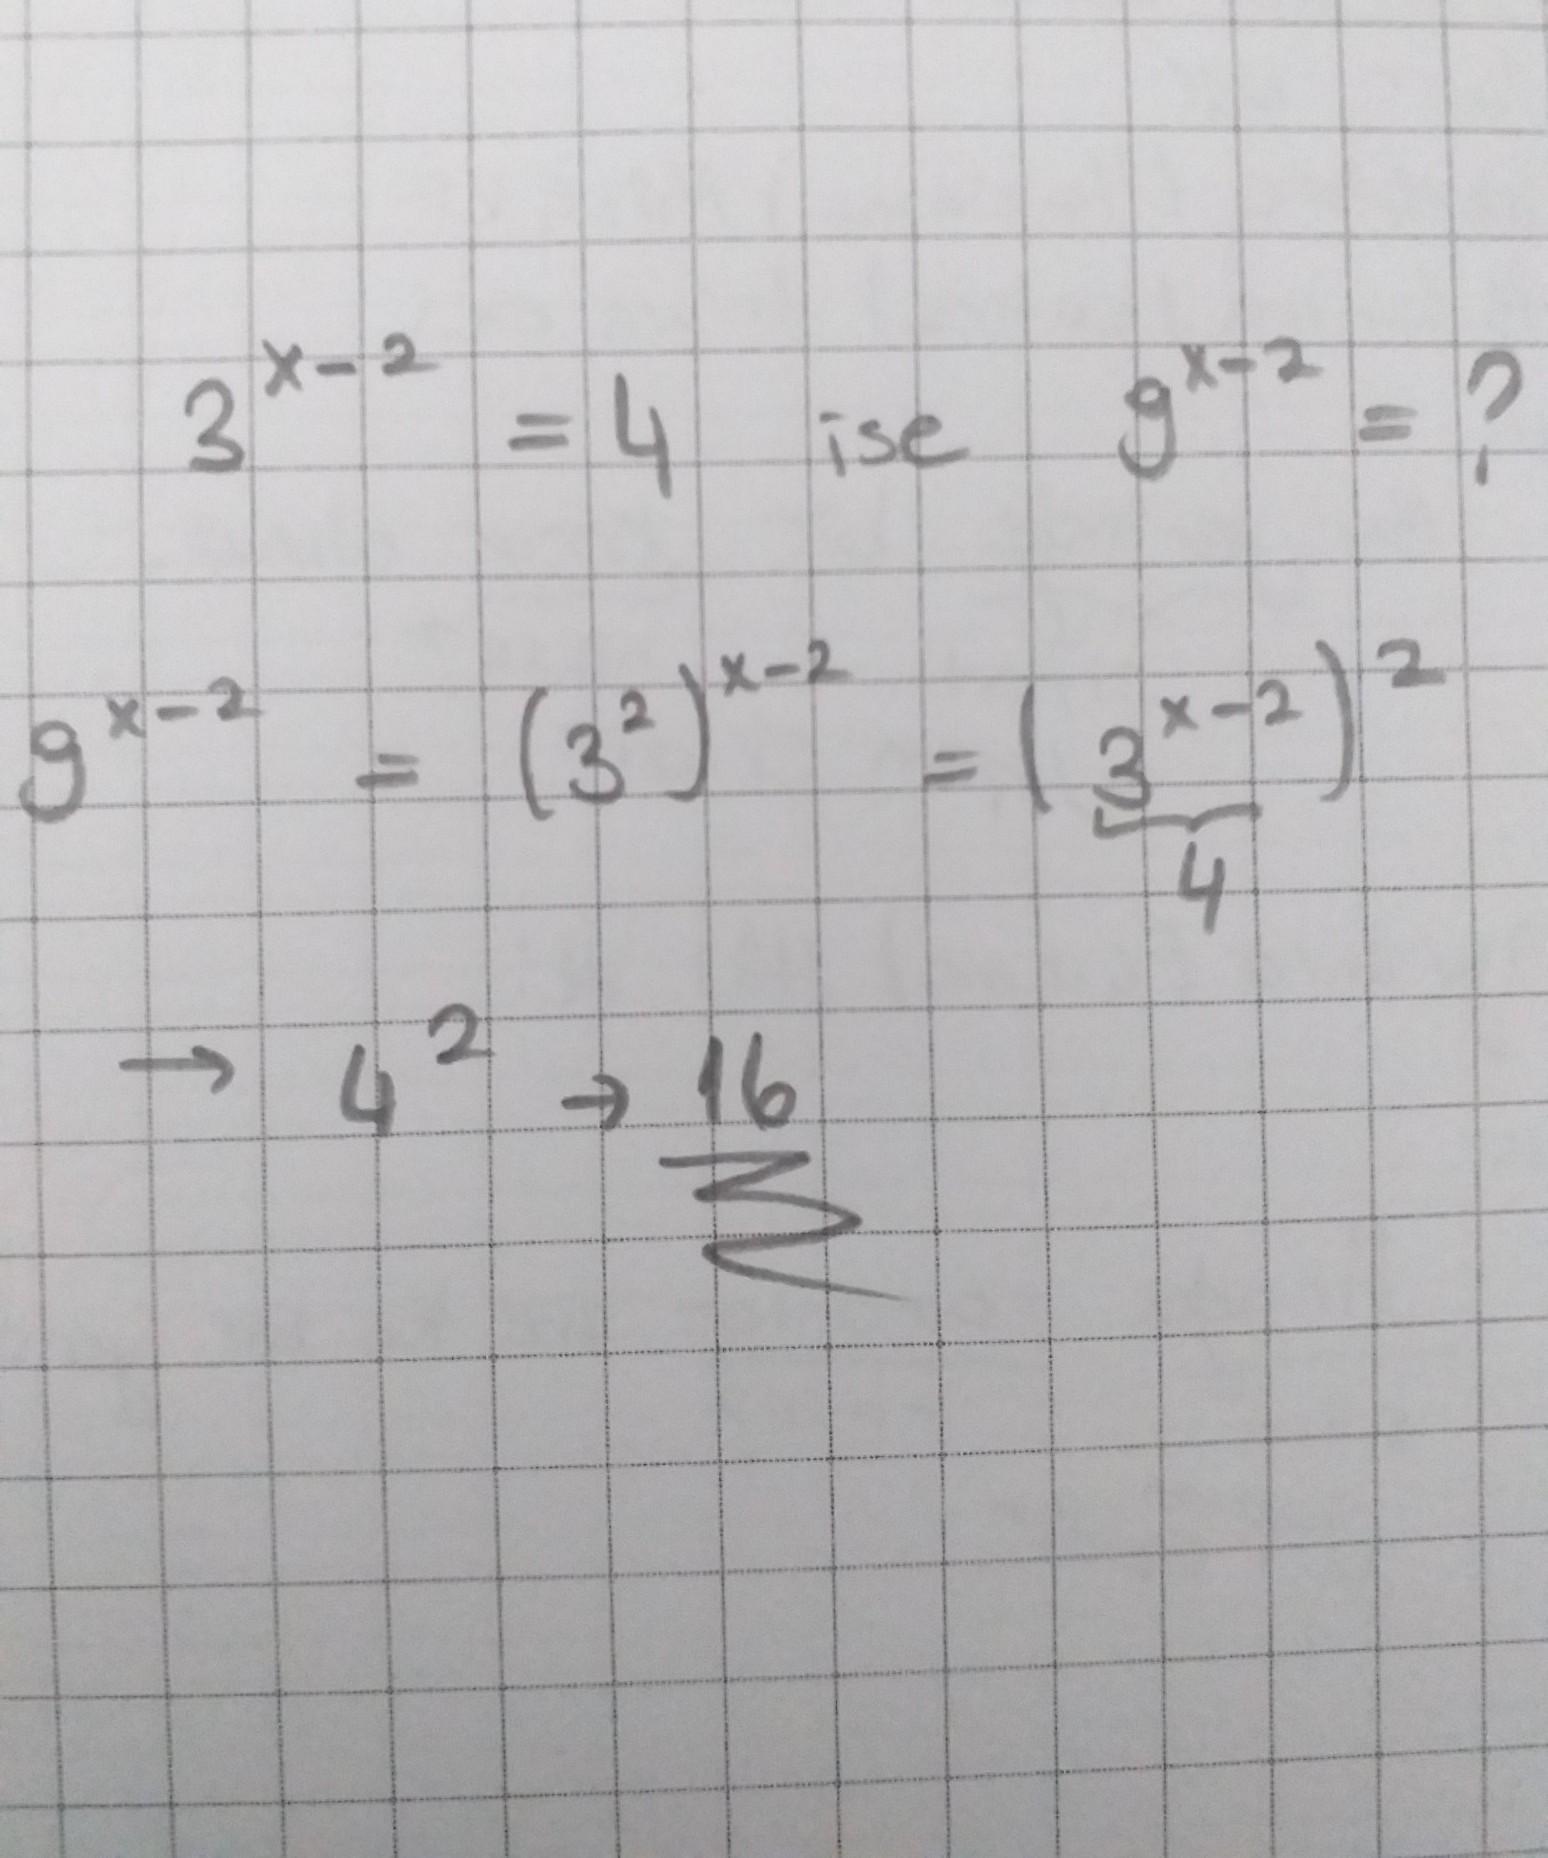 3^{x-2} = 4 ise 9^{x-2} = ?
9^{x-2} = (3^2)^{x-2} = (3^{x-2})^2
4
→ 4^2 → 16